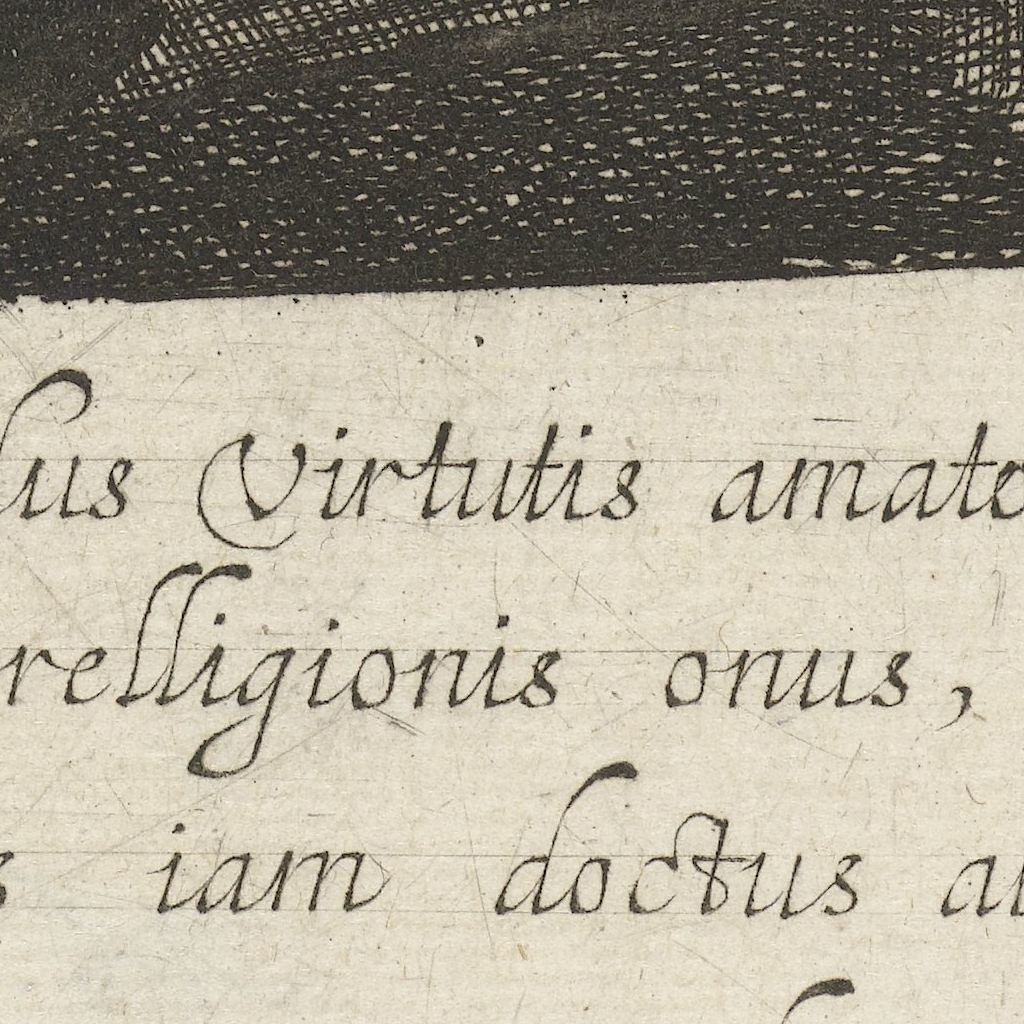 Virtutis
relligionis onus,
iam doctus